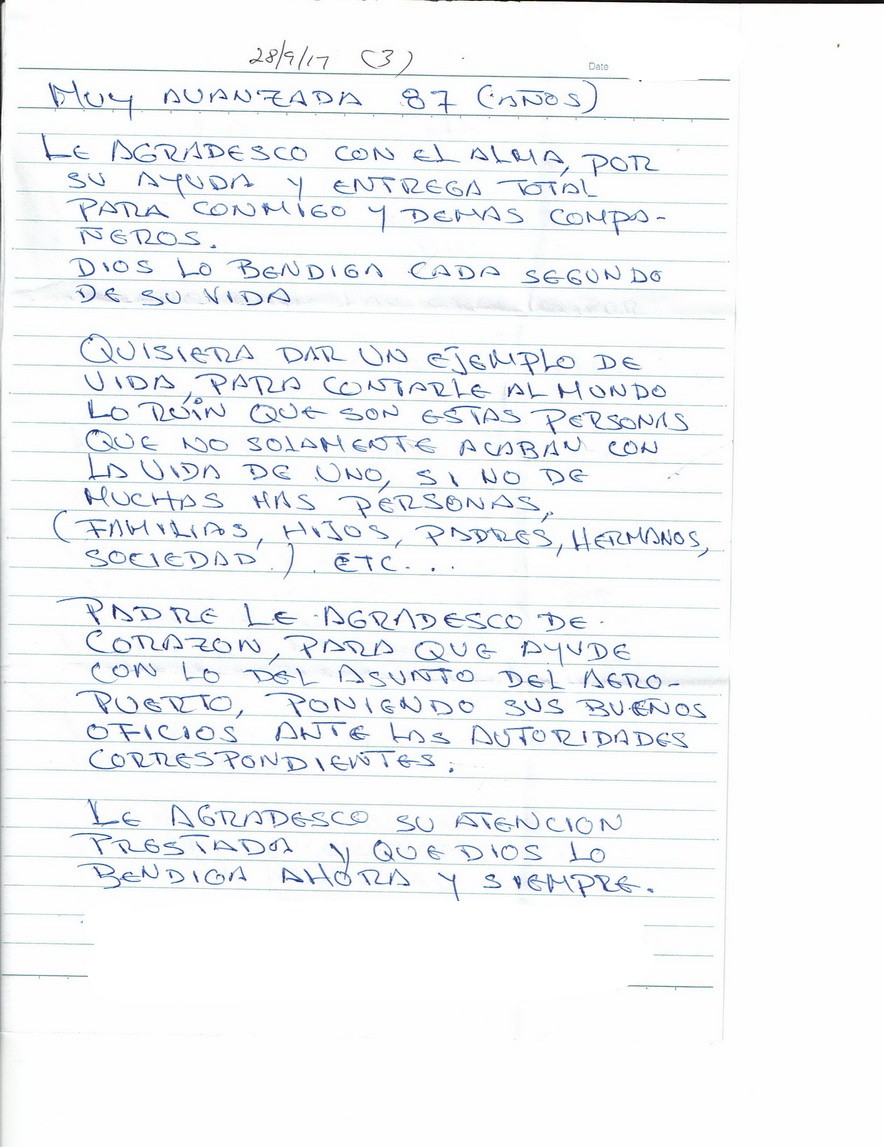 28/9/17 (3)
Date
MUY AVANZADA 87 (AÑOS)
LE AGRADESCO CON EL ALMA, POR
SU AYUDA Y ENTREGA TOTAL
PARA CONMIGO Y DEMAS COMPA-
ÑEROS.
DIOS LO BENDIGA CADA SEGUNDO
DE SU VIDA
QUISIERA DAR UN EJEMPLO DE
VIDA, PARA CONTARLE AL MUNDO
LO RUÍN QUE SON ESTAS PERSONAS
QUE NO SOLAMENTE ACABAN CON
LA VIDA DE UNO, SI NO DE
MUCHAS MAS PERSONAS,
(FAMILIAS, HIJOS, PADRES, HERMANOS,
SOCIEDAD.) ETC...
PADRE LE AGRADESCO DE
CORAZON, PARA QUE AYUDE
CON LO DEL ASUNTO DEL AERO-
PUERTO, PONIENDO SUS BUENOS
OFICIOS ANTE LAS AUTORIDADES
CORRESPONDIENTES.
LE AGRADESCO SU ATENCION
PRESTADA Y QUE DIOS LO
BENDIGA AHORA Y SIEMPRE.